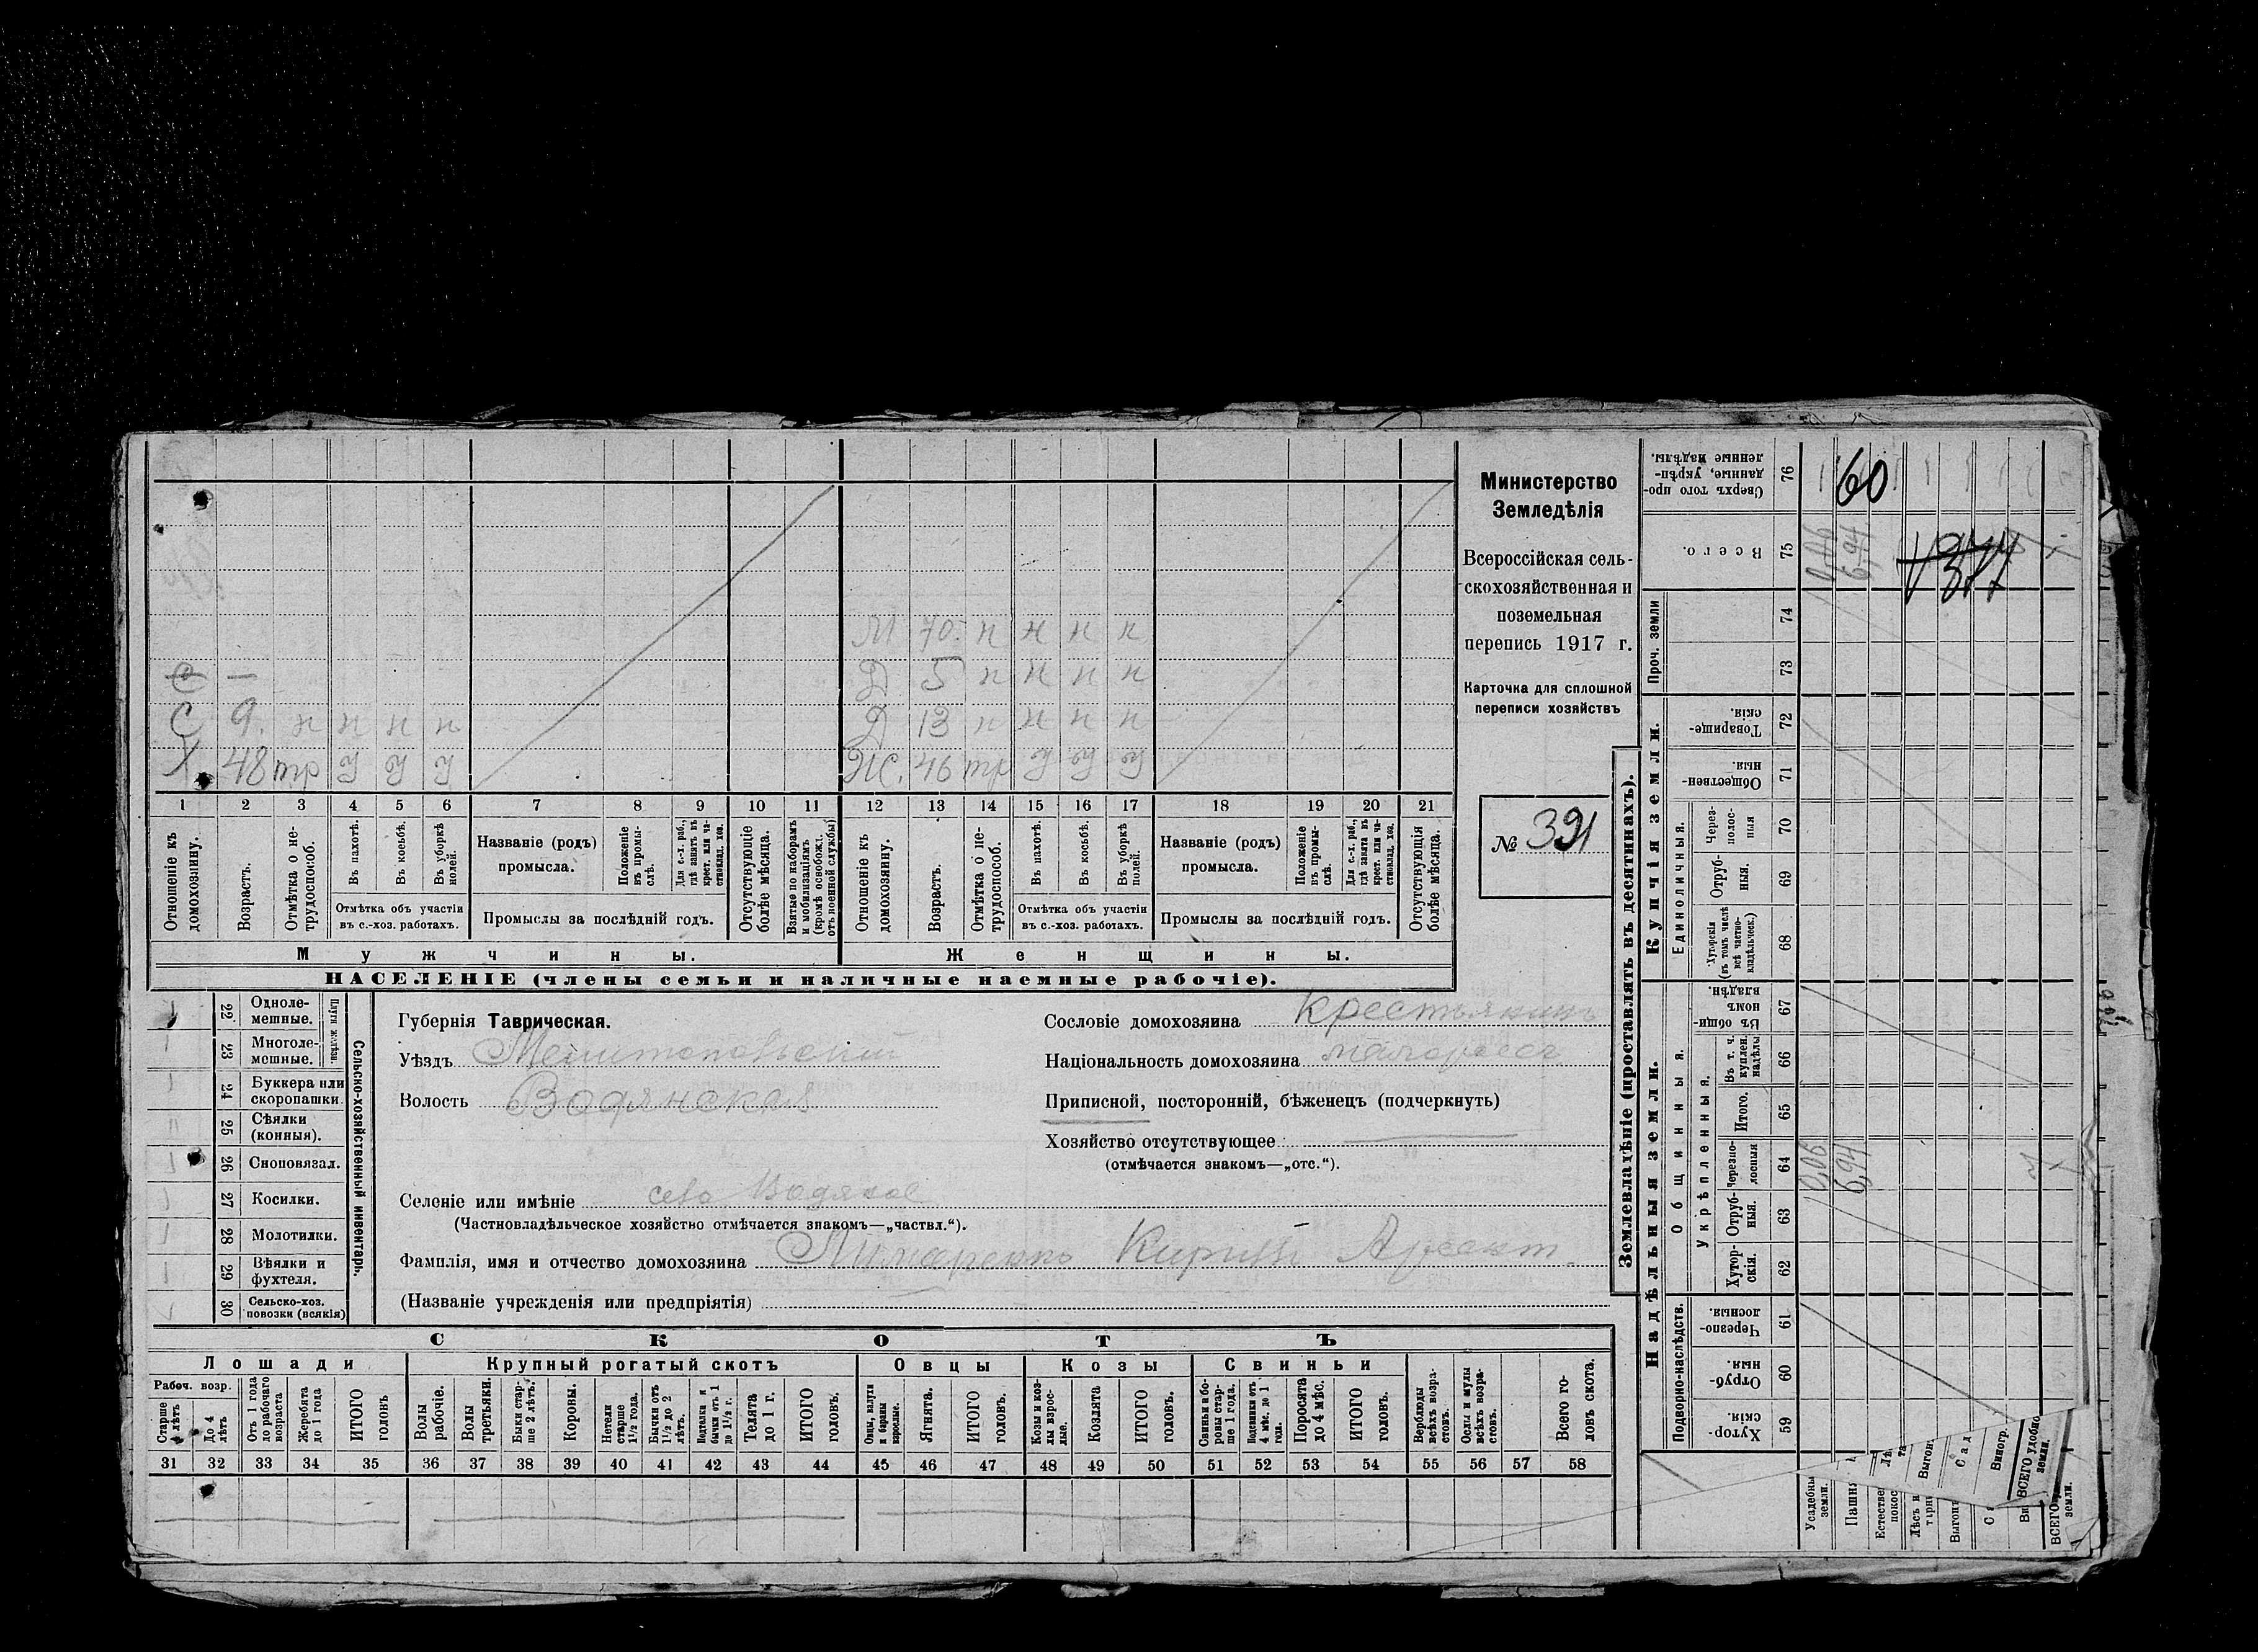 Министерство
Земледѣлія
Всероссійская сель-
скохозяйственная и
поземельная
перепись 1917 г.
Карточка для сплошной
переписи хозяйствъ
№ 391
М 70 н н н н
Д 5 н н н н
С 9. н н н н
Д 13 н н н н
Х 48 тр У У У
Ж. 46 тр У У У
1 2 3 4 5 6 7 8 9 10 11 12 13 14 15 16 17 18 19 20 21
Отношеніе къ домохозяину.
Возрастъ.
Отмѣтка о не-трудоспособ.
Въ пахотѣ.
Въ косьбѣ.
Въ уборкѣ полей.
Отмѣтка объ участіи
въ с.-хоз. работахъ.
Названіе (родъ)
промысла.
Положеніе въ промы-слѣ.
Для с.-х. раб., гдѣ занятъ въ крест. или ча-стновлад. хоз.
Промыслы за послѣдній годъ.
Отсутствующіе болѣе мѣсяца.
Взятые по наборамъ и мобилизаціямъ (кромѣ освобож. отъ военной службы)
Отношеніе къ домохозяину.
Возрастъ.
Отмѣтка о не-трудоспособ.
Въ пахотѣ.
Въ косьбѣ.
Въ уборкѣ полей.
Отмѣтка объ участіи
въ с.-хоз. работахъ.
Названіе (родъ)
промысла.
Положеніе въ промы-слѣ.
Для с.-х. раб., гдѣ занята въ крест. или ча-стновлад. хоз.
Промыслы за послѣдній годъ.
Отсутствующія болѣе мѣсяца.
Мужчины.
Женщины.
НАСЕЛЕНІЕ (члены семьи и наличные наемные рабочіе).
22 Одноле-мешные.
23 Многоле-мешные.
Плуги желѣзн.
24 Буккера или скоропашки.
25 Сѣялки (конныя).
26 Сноповязал.
27 Косилки.
28 Молотилки.
29 Вѣялки и фухтеля.
30 Сельско-хоз. повозки (всякія)
Сельско-хозяйственный инвентарь.
Губернія Таврическая.
Уѣздъ Мелитопольский
Волость Водянская
Сословіе домохозяина Крестьянинъ
Національность домохозяина малороссъ
Приписной, посторонній, бѣженецъ (подчеркнуть)
Хозяйство отсутствующее
(отмѣчается знакомъ—„отс.“).
Селеніе или имѣніе село Водяное
(Частновладѣльческое хозяйство отмѣчается знакомъ—„частвл.“).
Фамилія, имя и отчество домохозяина Лимаренко Кирилъ Арсент.
(Названіе учрежденія или предпріятія)
СКОТЪ
Лошади
Крупный рогатый скотъ
Овцы
Козы
Свиньи
Рабоч. возр.
Старше 4 лѣтъ
До 4 лѣтъ
Отъ 1 года до рабочаго возраста
Жеребята до 1 года
ИТОГО головъ
Волы рабочіе.
Волы третьяки.
Быки стар-ше 2 лѣтъ.
Коровы.
Нетели старше 1½ года.
Бычки отъ 1½ до 2 лѣтъ.
Подтелки и бычки отъ 1 до 1½ г.
Телята до 1 г.
ИТОГО головъ.
Овцы, валухи и бараны взрослые.
Ягнята.
ИТОГО головъ.
Козы и коз-лы взрос-лые.
Козлята
ИТОГО головъ.
Свиньи и бо-ровы стар-ше 1 года.
Подсвинки отъ 4 мѣс. до 1 года.
Поросята до 4 мѣс.
ИТОГО головъ.
Верблюды всѣхъ возра-стовъ.
Ослы и мулы всѣхъ возра-стовъ.
Всего го-ловъ скота.
31 32 33 34 35 36 37 38 39 40 41 42 43 44 45 46 47 48 49 50 51 52 53 54 55 56 57 58
Землевладѣніе (проставлять въ десятинахъ).
Надѣльныя земли.
Купчія земли.
Проч. земли
Подворно-наслѣдств.
Общинныя.
Укрѣпленныя.
Единоличныя.
Сверхъ того про-данные, укрѣп-ленные надѣлы. 76 60
Всего. 75 0,06 6,94
74
73
Товарище-скія. 72
Обществен-ныя. 71
Через-полос-ныя 70
Отруб-ныя. 69
Хуторскія (въ томъ числѣ всѣ частно-владѣльческ.) 68
Въ общи-номъ владѣн. 67
Въ т. ч. куплен. надѣлы 66
Итого. 65
Черезпо-лосныя 64 0,06 6,94
Отруб-ныя. 63
Хутор-скія. 62
Черезпо-лосныя. 61
Отруб-ныя 60
Хутор-скія. 59
Усадебны земли.
Пашня
Естествен покос
Лѣсъ и
Выгонъ
Сад
Виногр.
ВСЕГО удобно земли.
ВСЕГО земли.